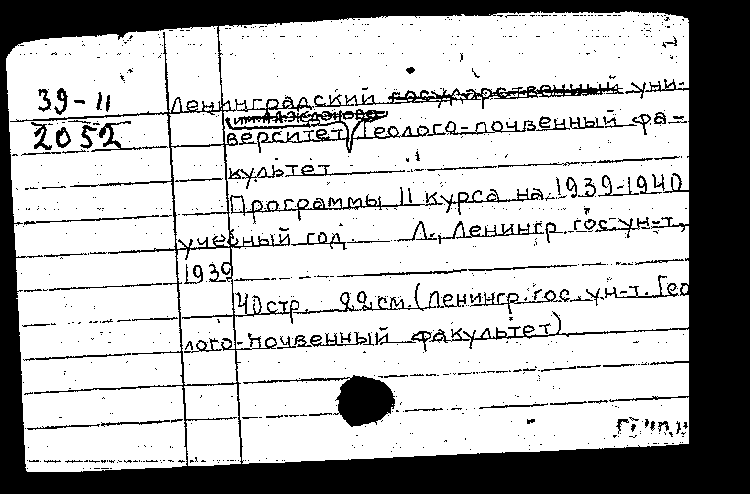 39-11
2052
Ленинградский государственный уни-
им. А.А. Жданова
верситет Геолого-почвенный фа-
культет
Программы II курса на 1939-1940
учебный год. Л., Ленингр. гос. ун-т,
1939
40 стр. 22 см. (Ленингр. гос. ун-т. Гео
лого-почвенный факультет)